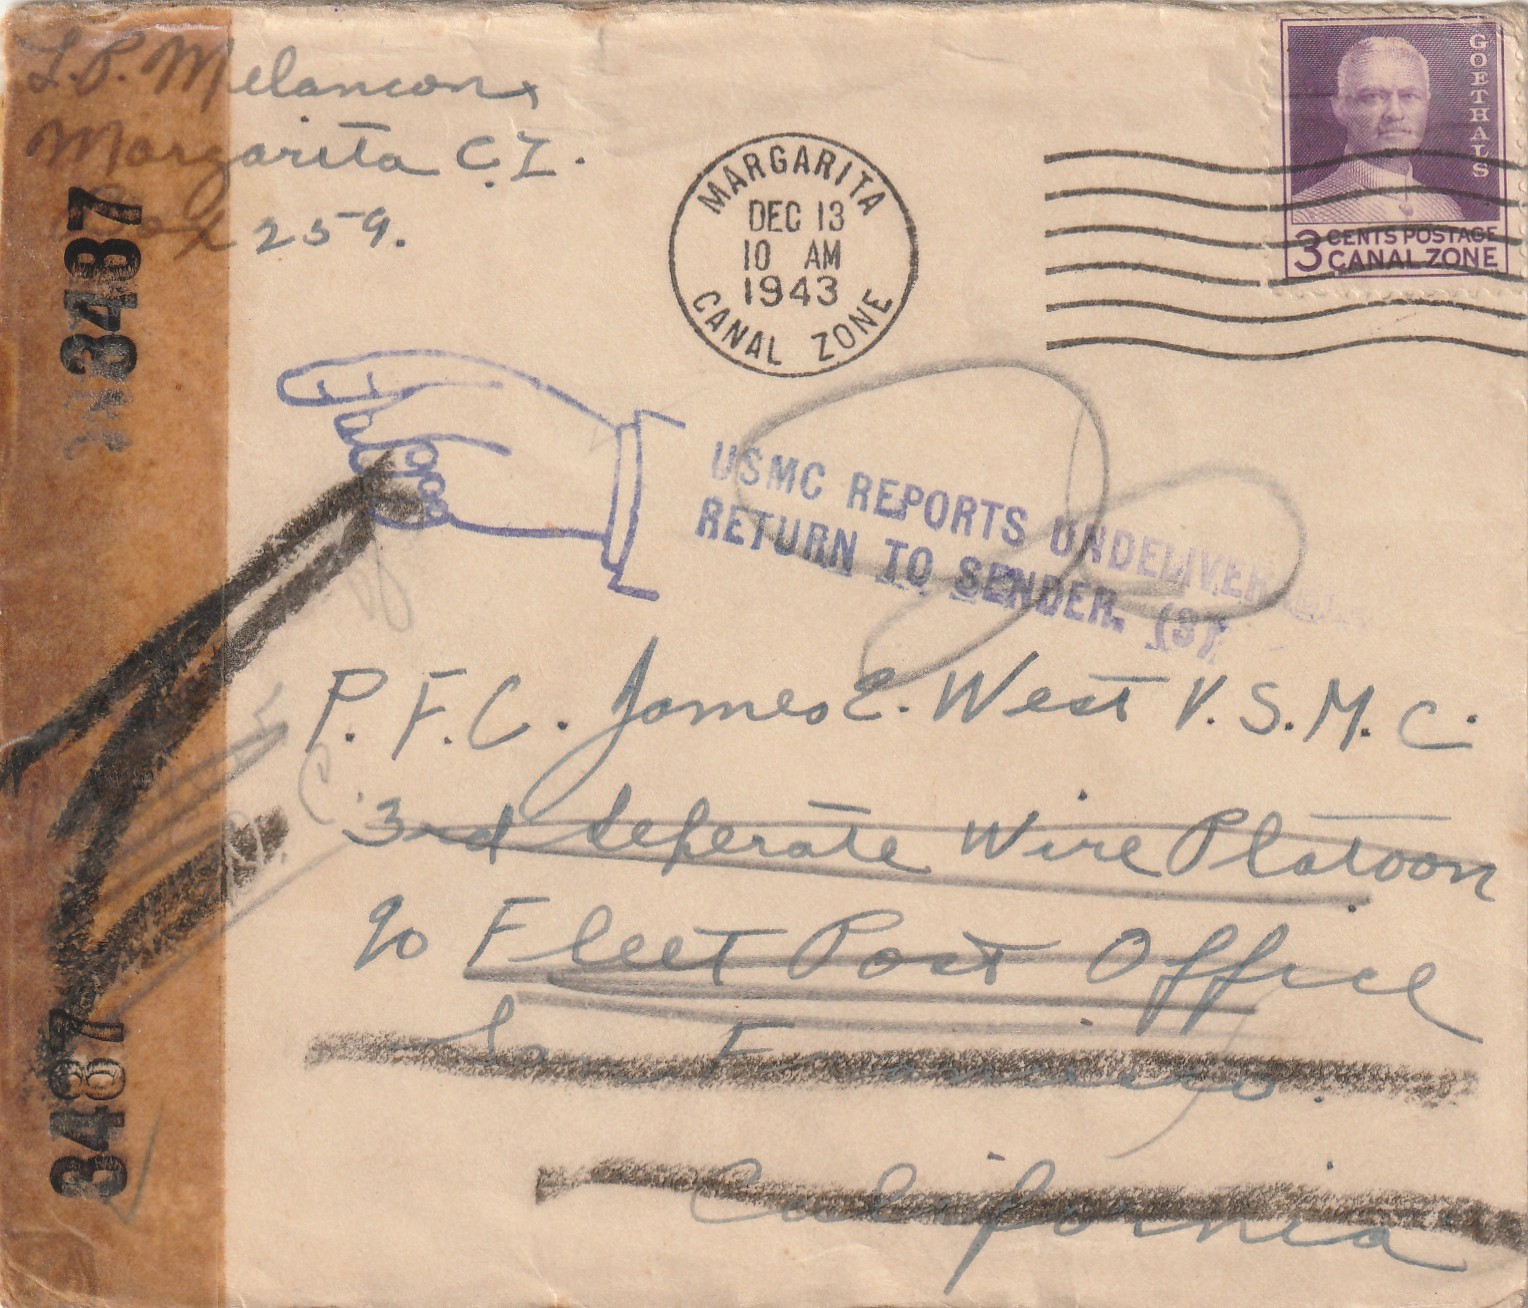 L.P. Melancon
Margarita C.Z.
Box 259.
MARGARITA
DEC 13
10 AM
1943
CANAL ZONE
GOETHALS
3 CENTS POSTAGE
CANAL ZONE
3487
USMC REPORTS UNDELIVER
RETURN TO SENDER. (3)
P.F.C. James E. West U.S.M.C.
3rd Seperate Wire Platoon
c/o Fleet Post Office
San Francisco.
California
3487